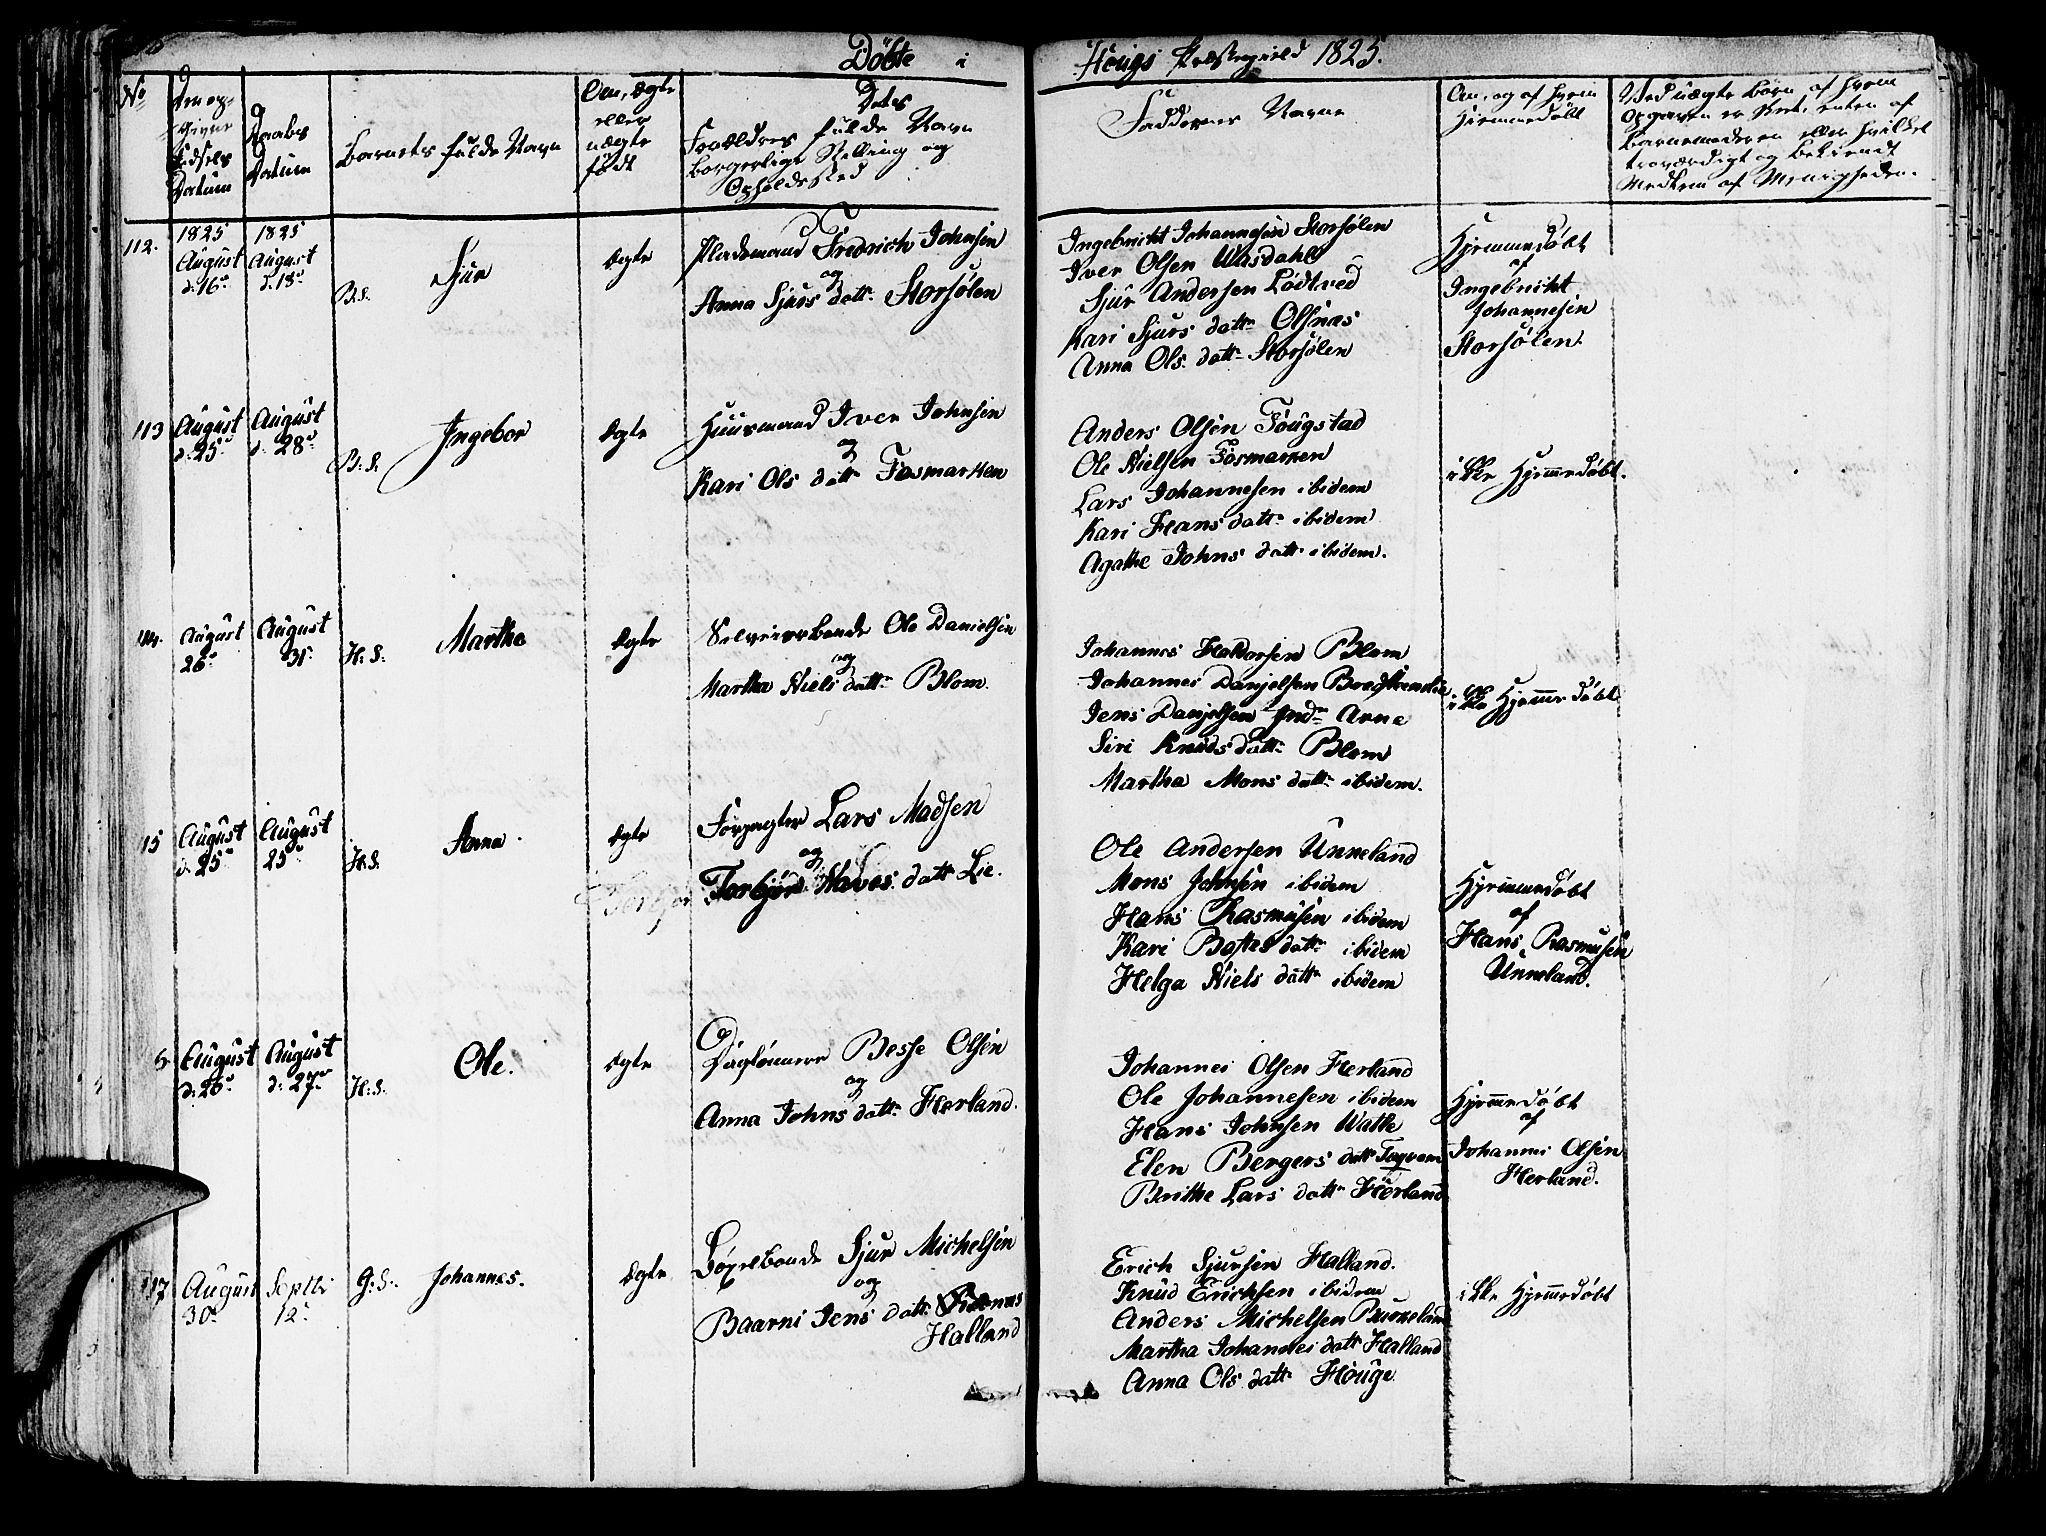 Döbte i Hougs Præstegield 1825.
No
Den opgivne Fødsels Datum
Daabs Datum
Barnets fulde Navn
Om, ægte eller uægte født
Dets Forældres fulde Navn borgerlige Stilling og Opholdssted
Faddernes Navne
Om, og af hvem Hjemmedöbt
Ved uægte Børn, af hvem Opgaven er skeet, enten af Barnemoderen eller hvilket troværdigt og bekiendt Medlem af Menigheden.
112.
1825 August d: 16de
1825 August d. 18de
B.S.
Sjur
ægte
Pladsmand Fredrich Johnsen
og
Anna Sjurs datt: Storsølen
Ingebricht Johannesen Storsølen
Iver Olsen Wasdahl
Sjur Andersen Lødtved
Kari Sjurs datt: Olsnæs
Anna Ols datt: Storsølen
Hjemmedöbt
af
Ingebricht
Johannesen
Storsølen.
113
August d. 25de
August d. 28de
B:S.
Ingebor
ægte
Huusmand Iver Johnsen
og
Kari Ols datt Fosmarken
Anders Olsen Fougstad
Ole Nielsen Fosmarken
Lars Johannesen ibidem
Kari Hans datt: ibidem
Agathe Johns datt: ibidem.
ikke Hjemmedöbt.
14.
August 26de
August 31te
H:S:
Marthe
ægte
Selveierbonde Ole Danielsen
og
Martha Niels datt: Blom.
Johannes Haldorsen Blom
Johannes Danjelsen
Jens Danjelsen Indre Arne
Siri Knuds datt: Blom
Martha Mons datt: ibidem.
ikke Hjemmedöbt
15
August d. 25de
August 25de
H.S.
Anna
ægte
Forpagter Lars Madsen
og
Torbjør datt Lie.
Ole Andersen Unneland
Mons Johnsen ibidem
Hans Rasmusen ibidem
Kari datt: ibidem
Helga Niels datt: ibidem
Hjemmedöbt
af
Hans Rasmusen
Unneland.
6
August d: 26de
August d: 27de
H:S.
Ole.
ægte
Dagløнnere Besse Olsen
og
Anna Johns datt: Herland.
Johannes Olsen Herland
Ole Johannesen ibidem
Hans Johnsen Watle
Elen Bergers datt Taqvam
Brithe Lars datt: Herland
Hjemmedöbt
af
Johannes Olsen
Herland.
117
August 30te
Septbr 12te
G:S:
Johannes.
ægte
Bøxelbonde Sjur Michelsen
og
Baarni Jens datt:
Halland
Erich Sjursen Halland.
Knud Erichsen ibidem
Anders Michelsen
Martha Johannes datt Halland
Anna Ols datt: Houge
ikke Hjemmedöbt